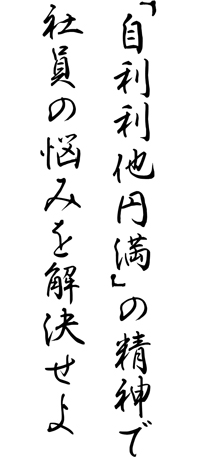 「自利利他円満」の精神で
社員の悩みを解決せよ